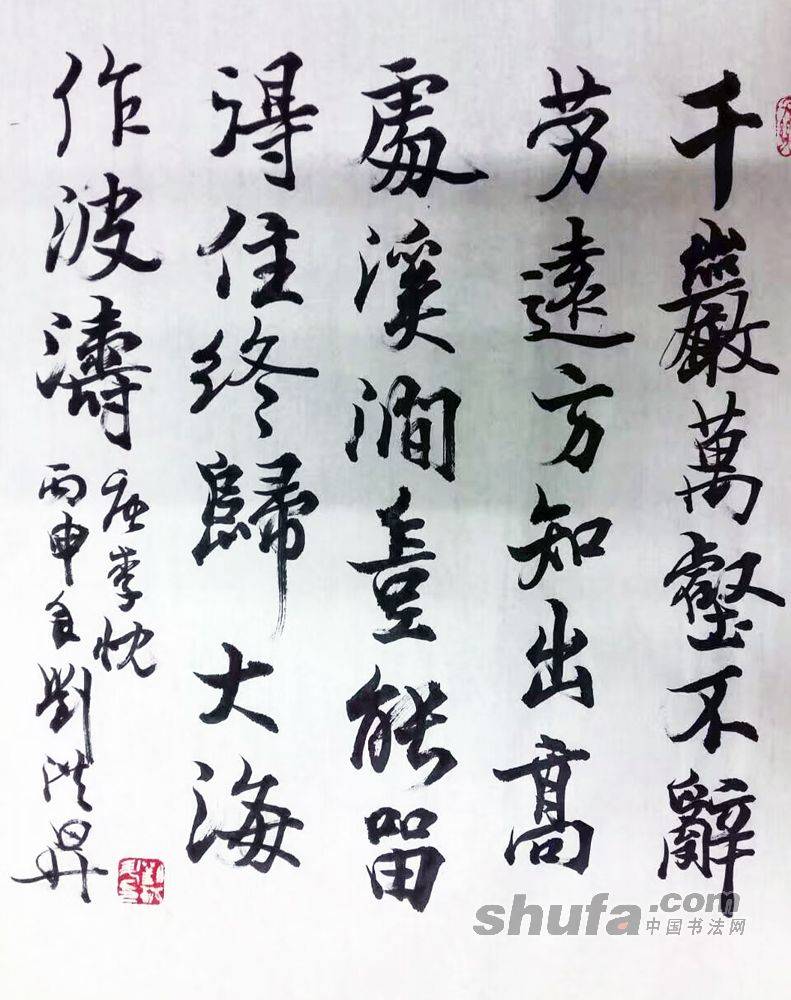 千巖萬壑不辭
勞遠方知出高
處溪澗豈能留
得住終歸大海
作波濤
唐李忱
丙申年劉洪昇
shufa.com
中国书法网